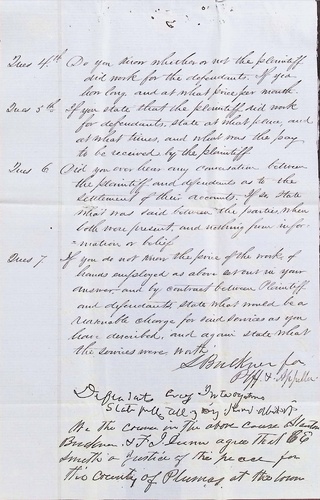 Ques 4th Do you know whether or not the plaintiff
did work for the defendants. If yea
how long, and at what price per month.
Ques 5th If you state that the plaintiff did work
for defendants, state at what place, and
at what times, and what was the pay
to be received by the plaintiff
Ques 6 Did you ever hear any conversation between
the plaintiff and defendants as to the
settlement of their accounts. If so state
what was said between the parties when
both were present, and nothing from infor-
mation or belief
Ques 7 If you do not know the price of the work of
hands employed as above set out in your
answer and by contract between Plaintiff
and defendants, state what would be a
reasonable charge for said services as you
have described, and again state what
the services were worth
Buckner for
Plff & Appellee
Defendants Cross Interrogatory
State fully all you know
We the counsel in the above cause
Buckner & F J Dunn agree that E E
Smith a Justice of the peace for
this County of Plumas at the town